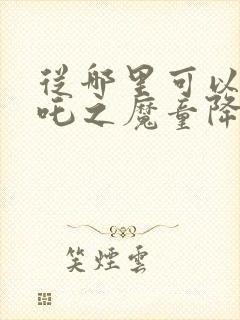 從哪里可以
吒之魔童降
笑煙雲